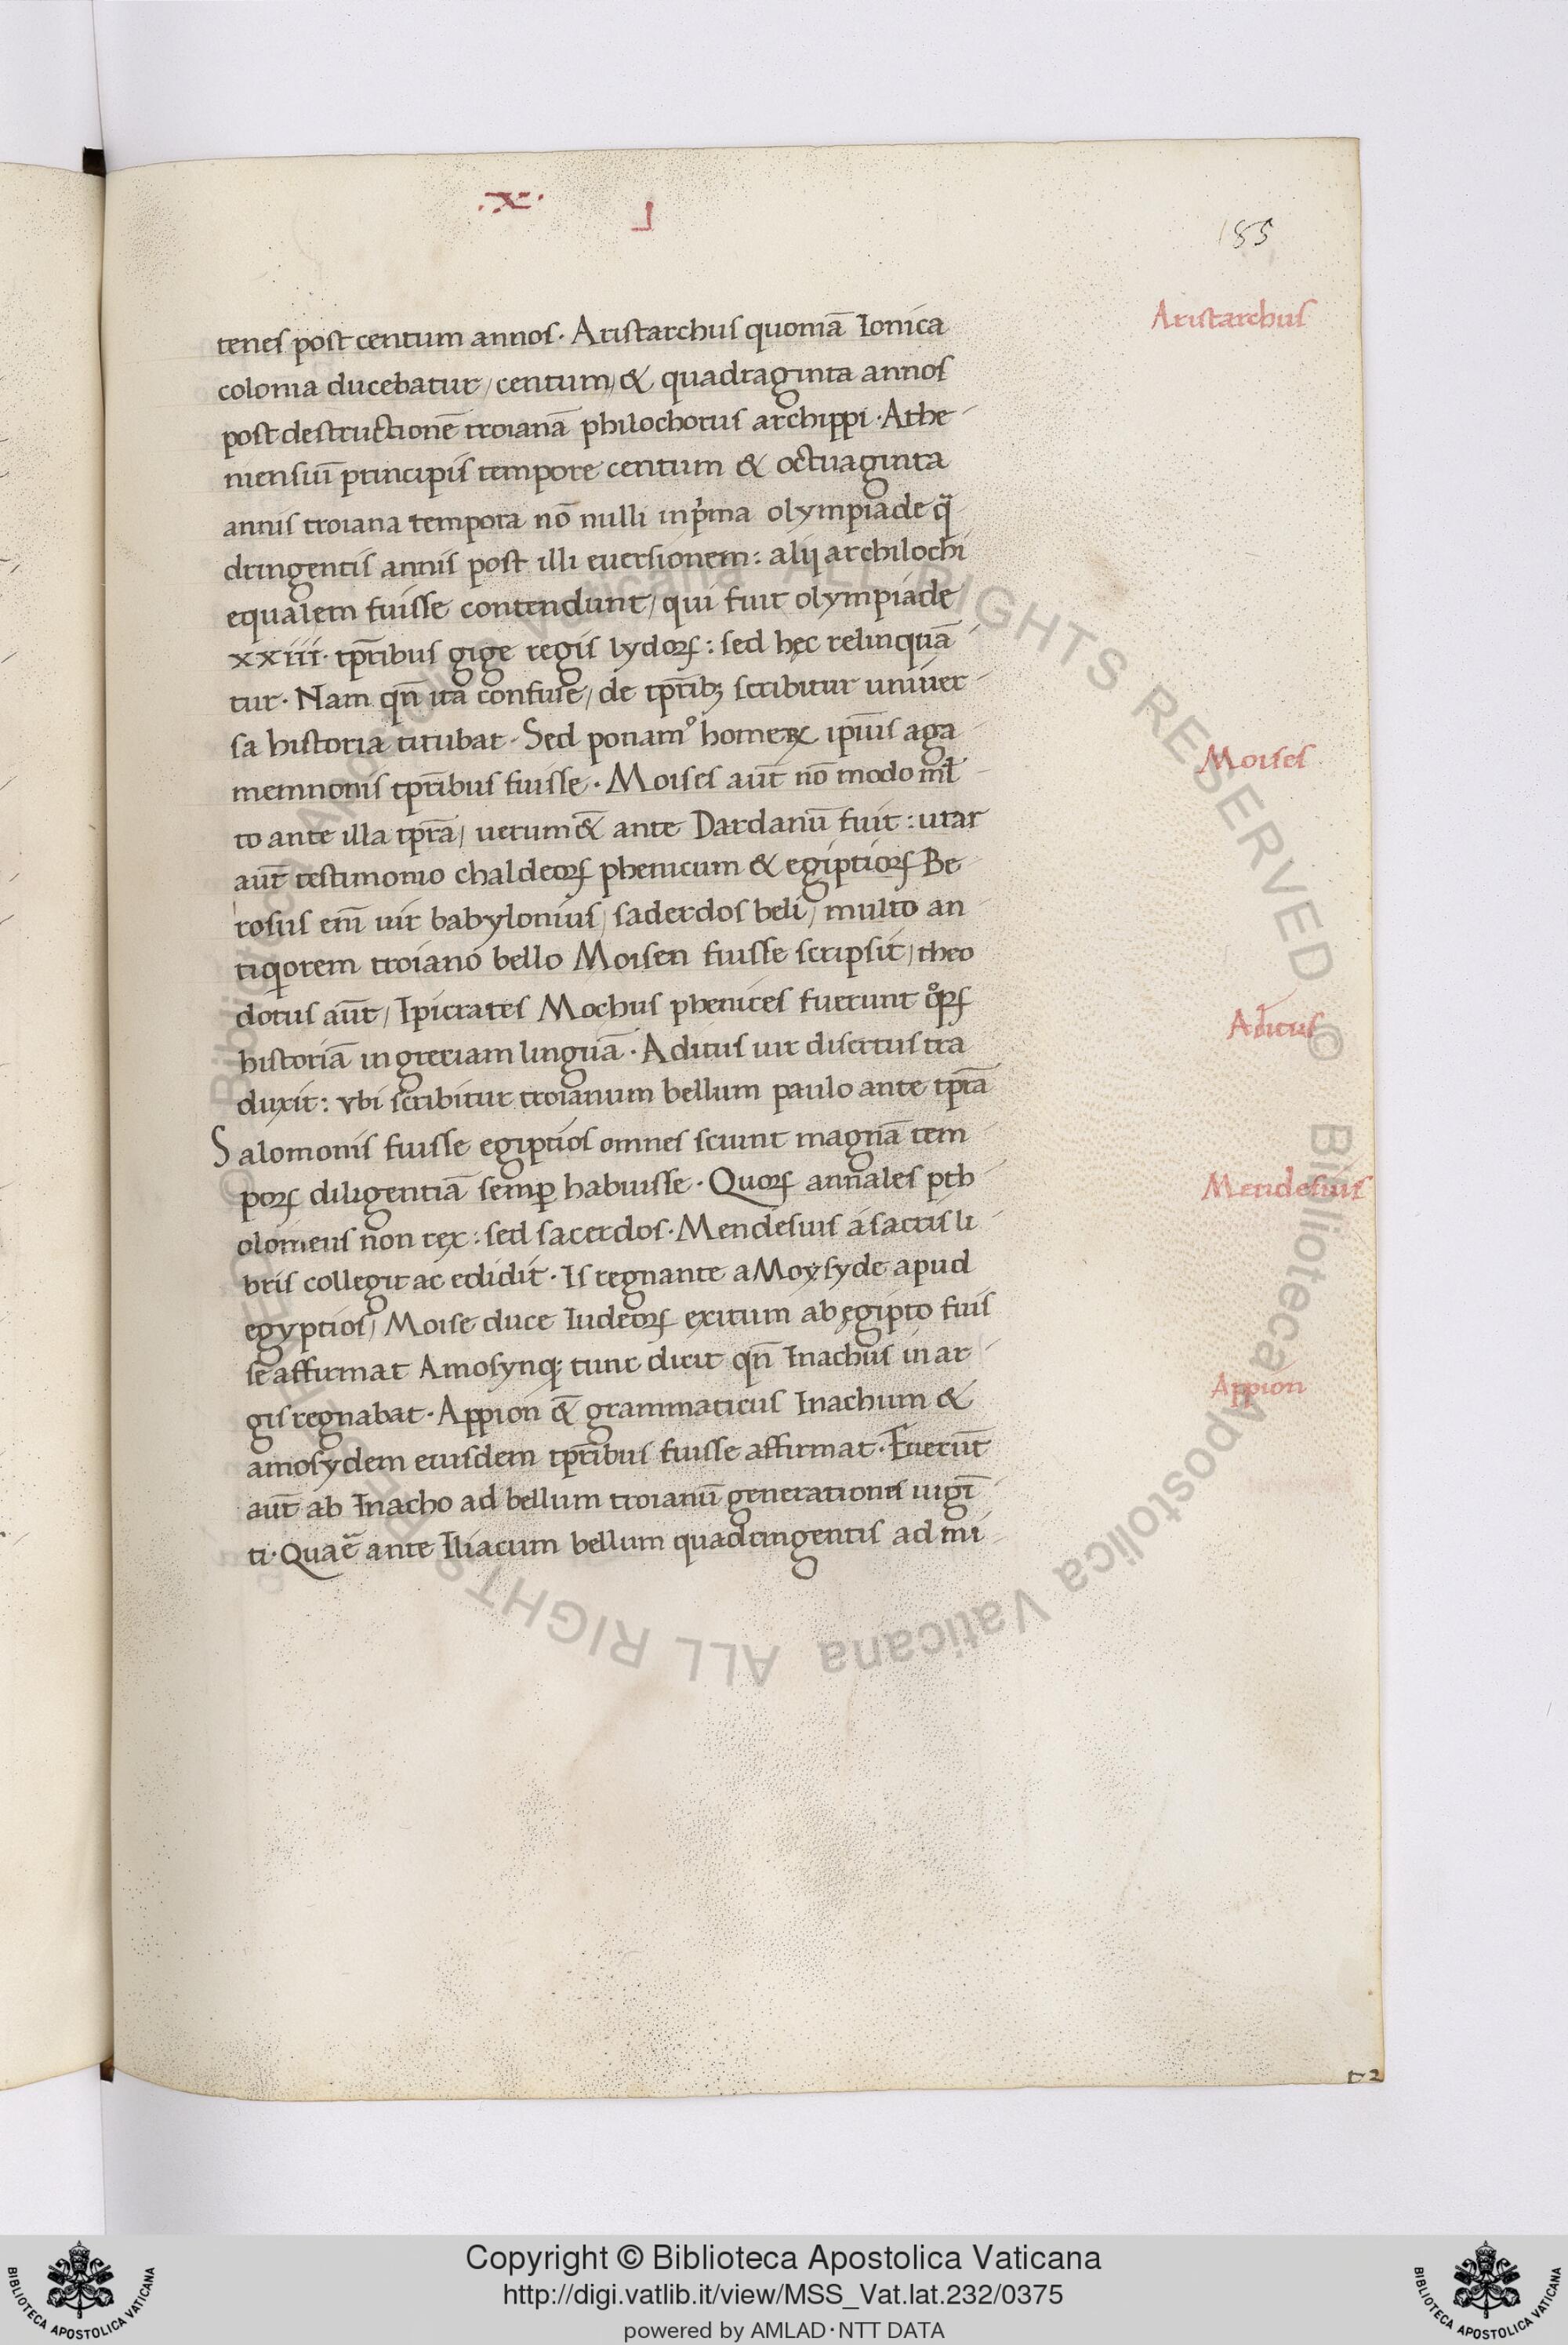 .X.
185
tenes post centum annos. Aristarchus quoniā Ionica
colonia ducebatur / centum / & quadraginta annos
post destructionē troianā philochorus archippi. Athe-
niensiū principis tempore centum & octuaginta
annis troiana tempora nō nulli inp̄ma olympiade q̄-
dringentis annis post illi euersionem: alij archilochi
equalem fuisse contendunt / qui fuit olympiade
xxiii. tp̄ribus gige regis lydoꝝ: sed hęc relinquā-
tur. Nam qn̄ ita confuse / de tp̄ribꝫ scribitur uniuer-
sa historia titubat. Sed ponamꝰ homeꝝ ipsius aga-
memnonis tp̄ribus fuisse. Moises aut̄ nō modo ml̄-
to ante illa tp̄ra / uerum &̄ ante Dardanū fuit: utar
aut̄ testimonio chaldeoꝝ phenicum & egiptioꝝ Be-
rosus em̄ uir babylonius / saderdos beli / multo an
tiqiorem troiano bello Moisen fuisse scripsit / theo
dotus aut̄ / Ipicrates Mochus phenices fuerunt qͦꝝ
historiā in greciam linguā. Aditus uir disertus tra
duxit: vbi scribitur troianum bellum paulo ante tp̄ra
Salomonis fuisse egiptios omnes sciunt magnā tem-
poꝝ diligentiā semꝑ habuisse. Quoꝝ annales pth-
olomeus non rex: sed sacerdos. Mendesius a sacris li-
bris collegit ac edidit. Is regnante a Moysyde apud
egyptios / Moise duce Iudeoꝝ exitum ab ęgipto fuis
se affirmat Amosynqꝫ tunc dicit qn̄ Inachus in ar-
gis regnabat. Appion &̄ grammaticus Inachum &
amosydem eiusdem tp̄ribus fuisse affirmat. Fuerūt
aut̄ ab Inacho ad bellum troianū generationes uigī-
ti. Quae̅ ante Iliacum bellum quadringentis ad mi-
Aristarchus
Moises
Aditus
Mendesius
Appion
t 2
© Biblioteca Apostolica Vaticana ALL RIGHTS RESERVED © Biblioteca Apostolica Vaticana ALL RIGHTS RESERVED
Copyright © Biblioteca Apostolica Vaticana
http://digi.vatlib.it/view/MSS_Vat.lat.232/0375
powered by AMLAD·NTT DATA
BIBLIOTECA APOSTOLICA VATICANA
BIBLIOTECA APOSTOLICA VATICANA